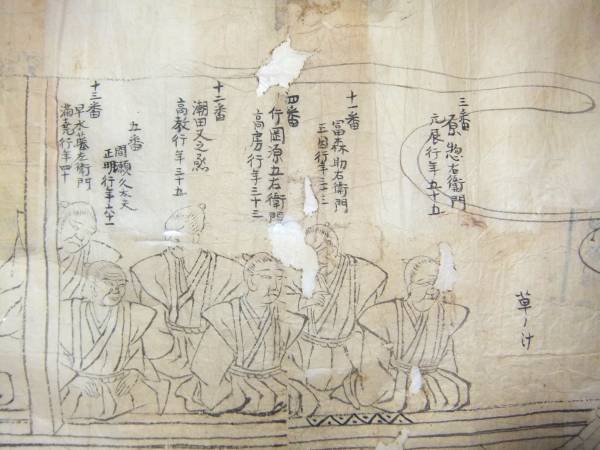 三番
原惣右衛門
元辰行年五十五
十一番
冨森助右衛門
正因行年三十三
四番
片岡源五右衛門
高房行年三十三
十二番
潮田又之丞
高教行年三十五
五番
間瀬久太夫
正明行年六十一
十三番
早水藤左衛門
満尭行年四十
草ノ汁